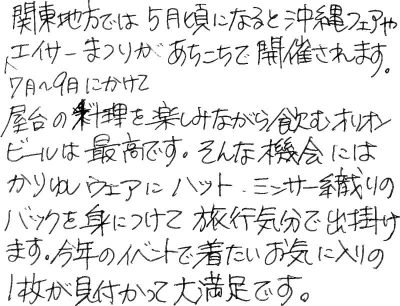 関東地方では5月頃になると沖縄フェアや
エイサーまつりがあちこちで開催されます。
7月〜9月にかけて
屋台の料理を楽しみながら飲むオリオン
ビールは最高です。そんな機会には
かりゆしウェアにハット、ミンサー織りの
バックを身につけて旅行気分で出掛け
ます。今年のイベントで着たいお気に入りの
1枚が見付かって大満足です。